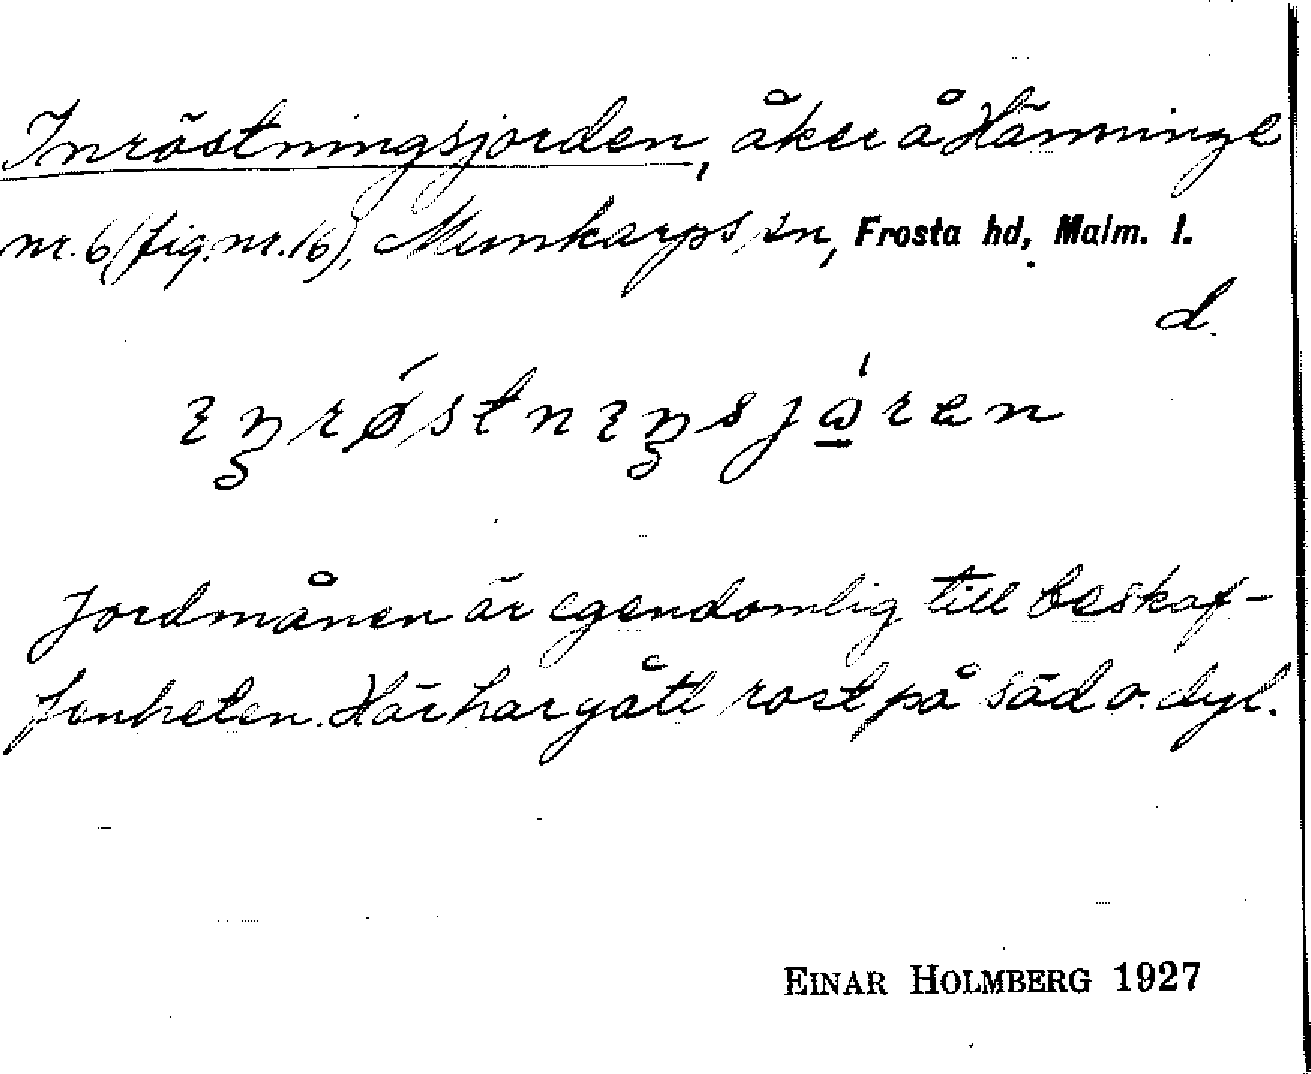 Inröstningsjorden, åker å Hänninge
nr. 6 (fig. nr. 16), Munkarps sn, Frosta hd, Malm. l.
d.
Jordmånen är egendomlig till beskaf-
fenheten. Här har gått rost på säd o. dyl.
EINAR HOLMBERG 1927